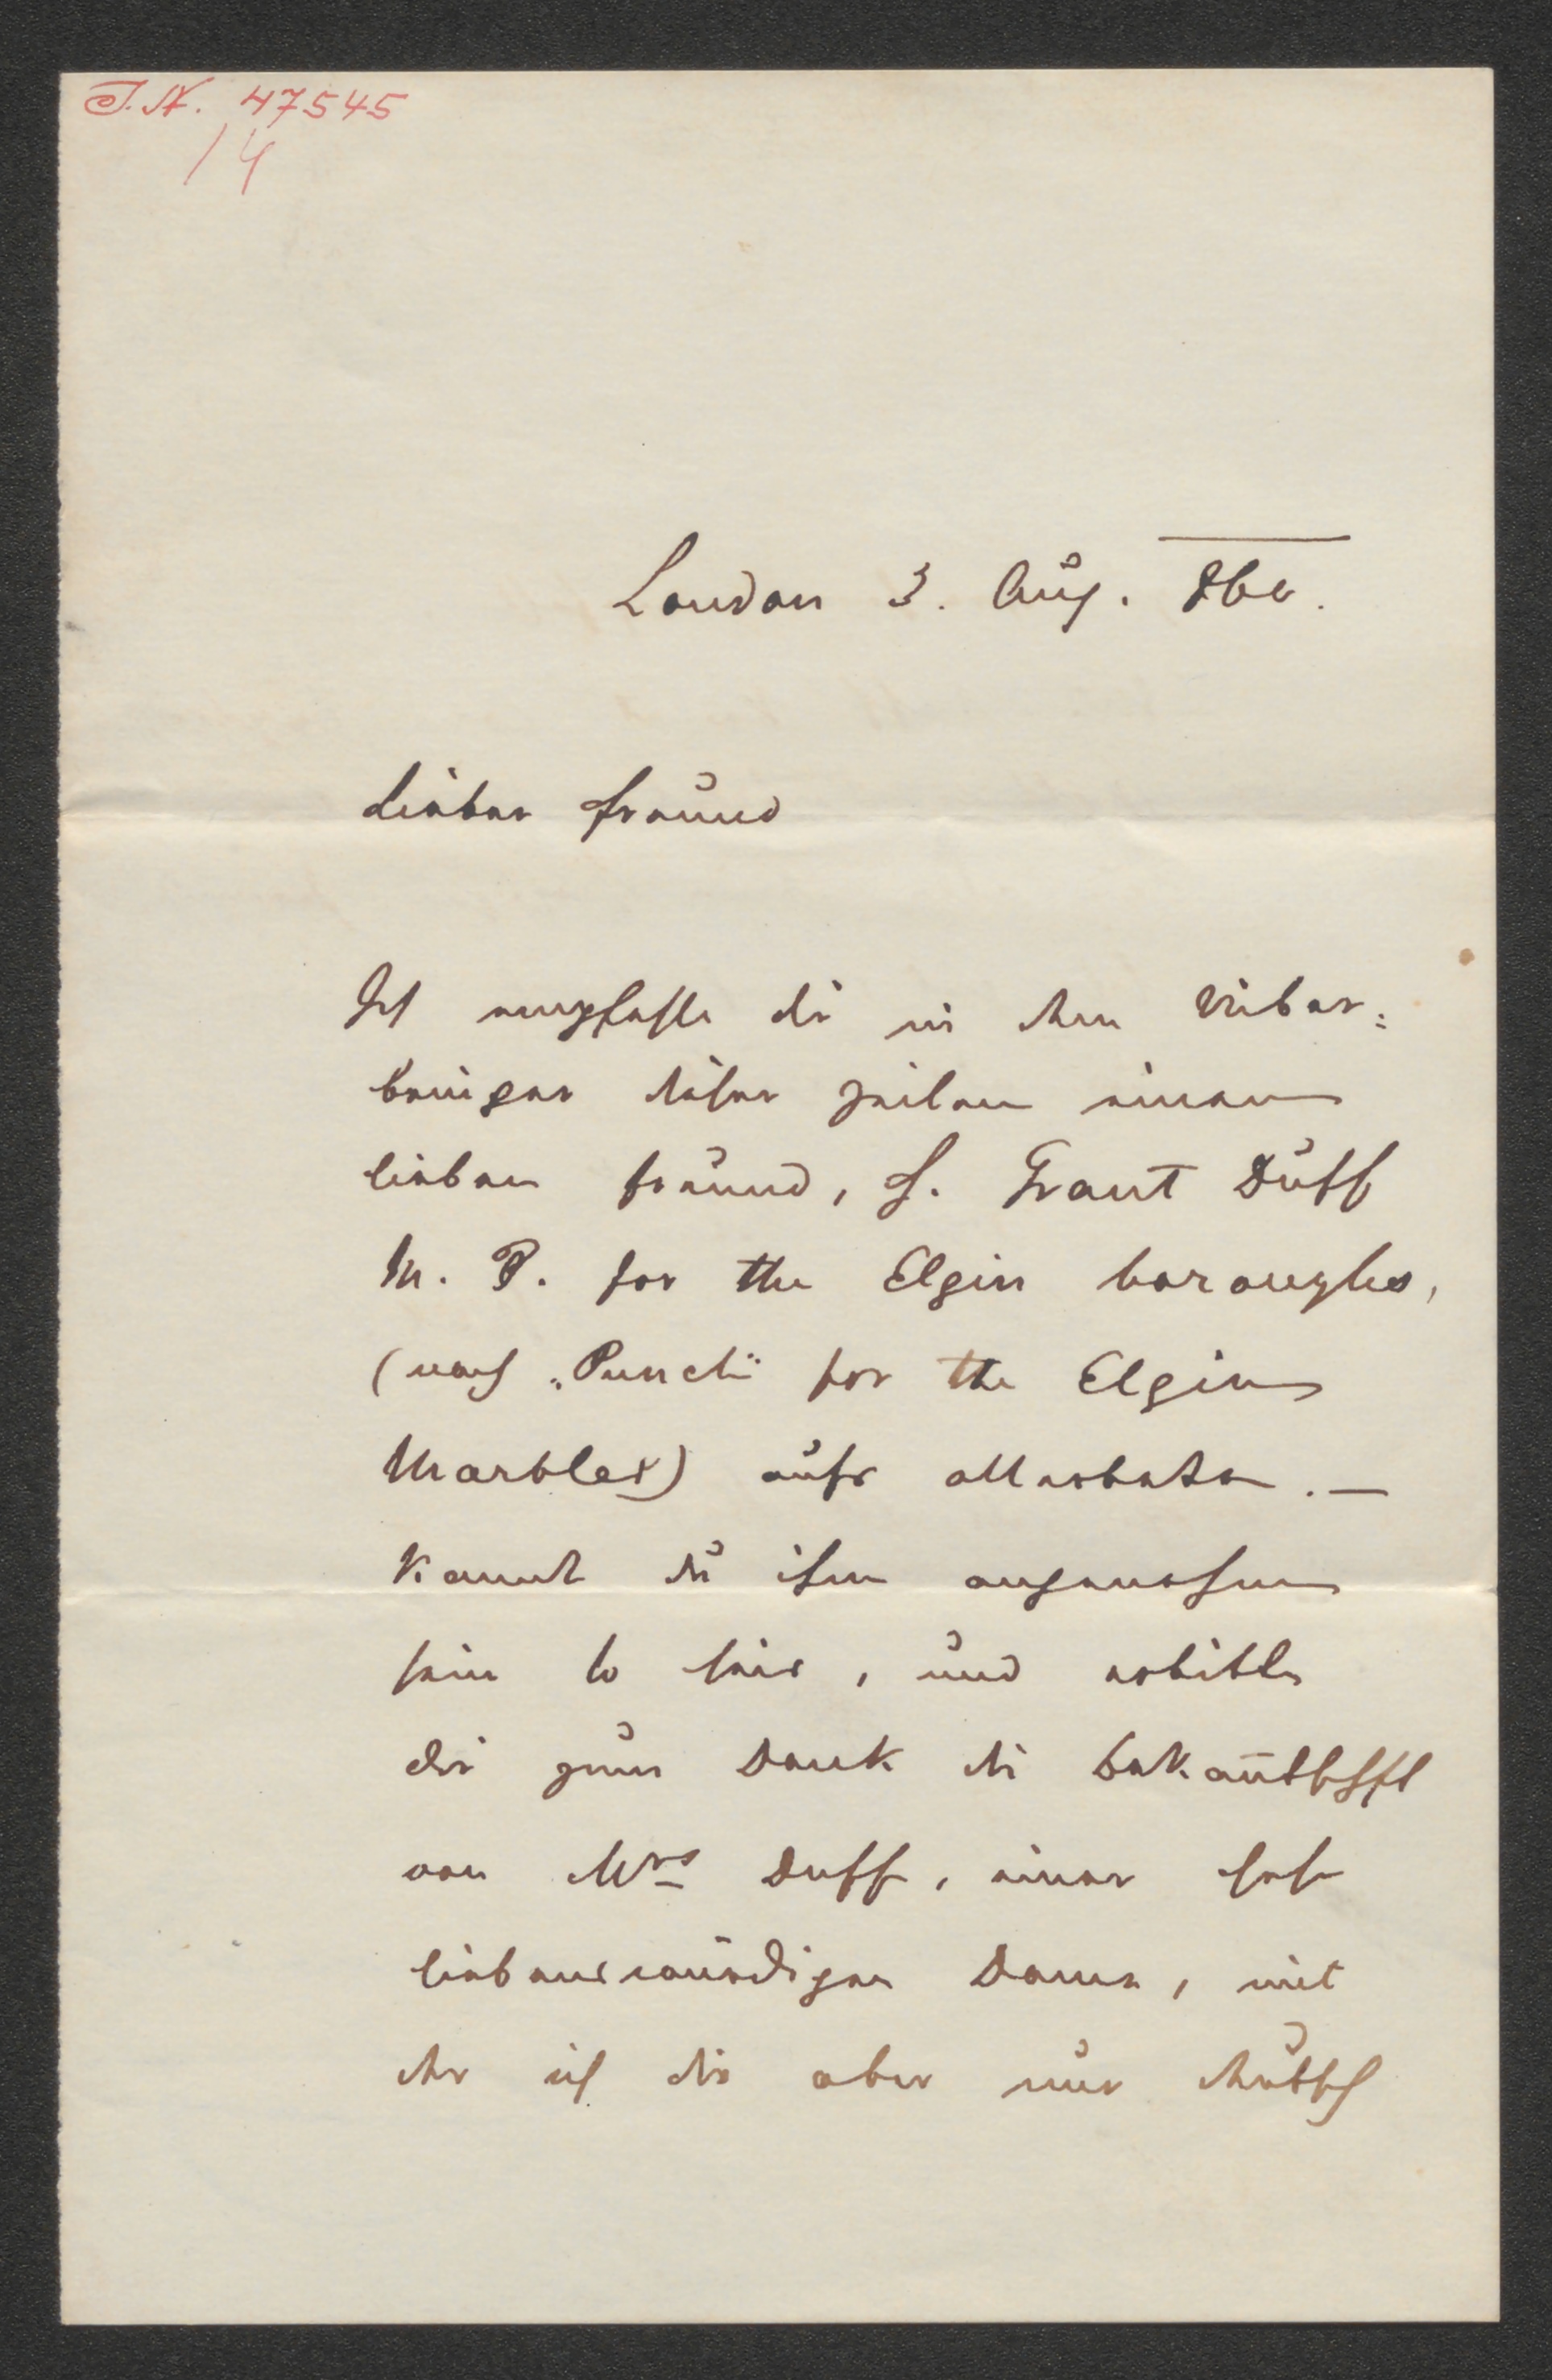 J.N. 47545
/4
London 3. Aug. 866.
Lieber Freund
Ich empfehle dir in dem Uiber=
bringer dieser Zeilen einen
lieben Freund, H. Grant Duff
M. P. for the Elgin boroughs,
(nach „Punch“ for the Elgin
Marbles) aufs allerbeste. —
Kannst du ihm angenehm
sein so seis, und erbitte
dir zum Dank die Bekan̄tschft
von Mrs Duff, einer sehr
liebenswürdigen Dame, mit
der ich dir aber nur deutsch